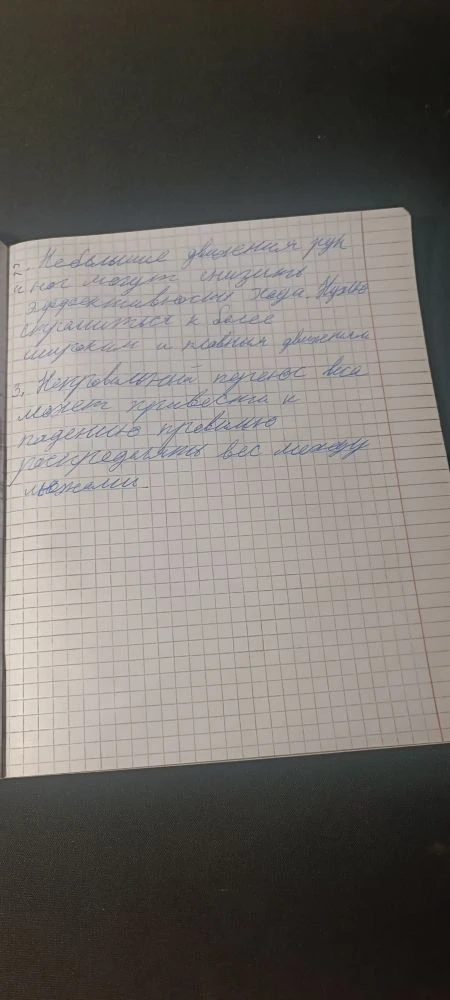 2. Небольшие движения рук
и ног могут снизить
эффективность хода. Нужно
стремиться к более
широким и плавным движениям
3. Неправильный перенос веса
может привести к
падению правильно
распределять вес между
лыжами.